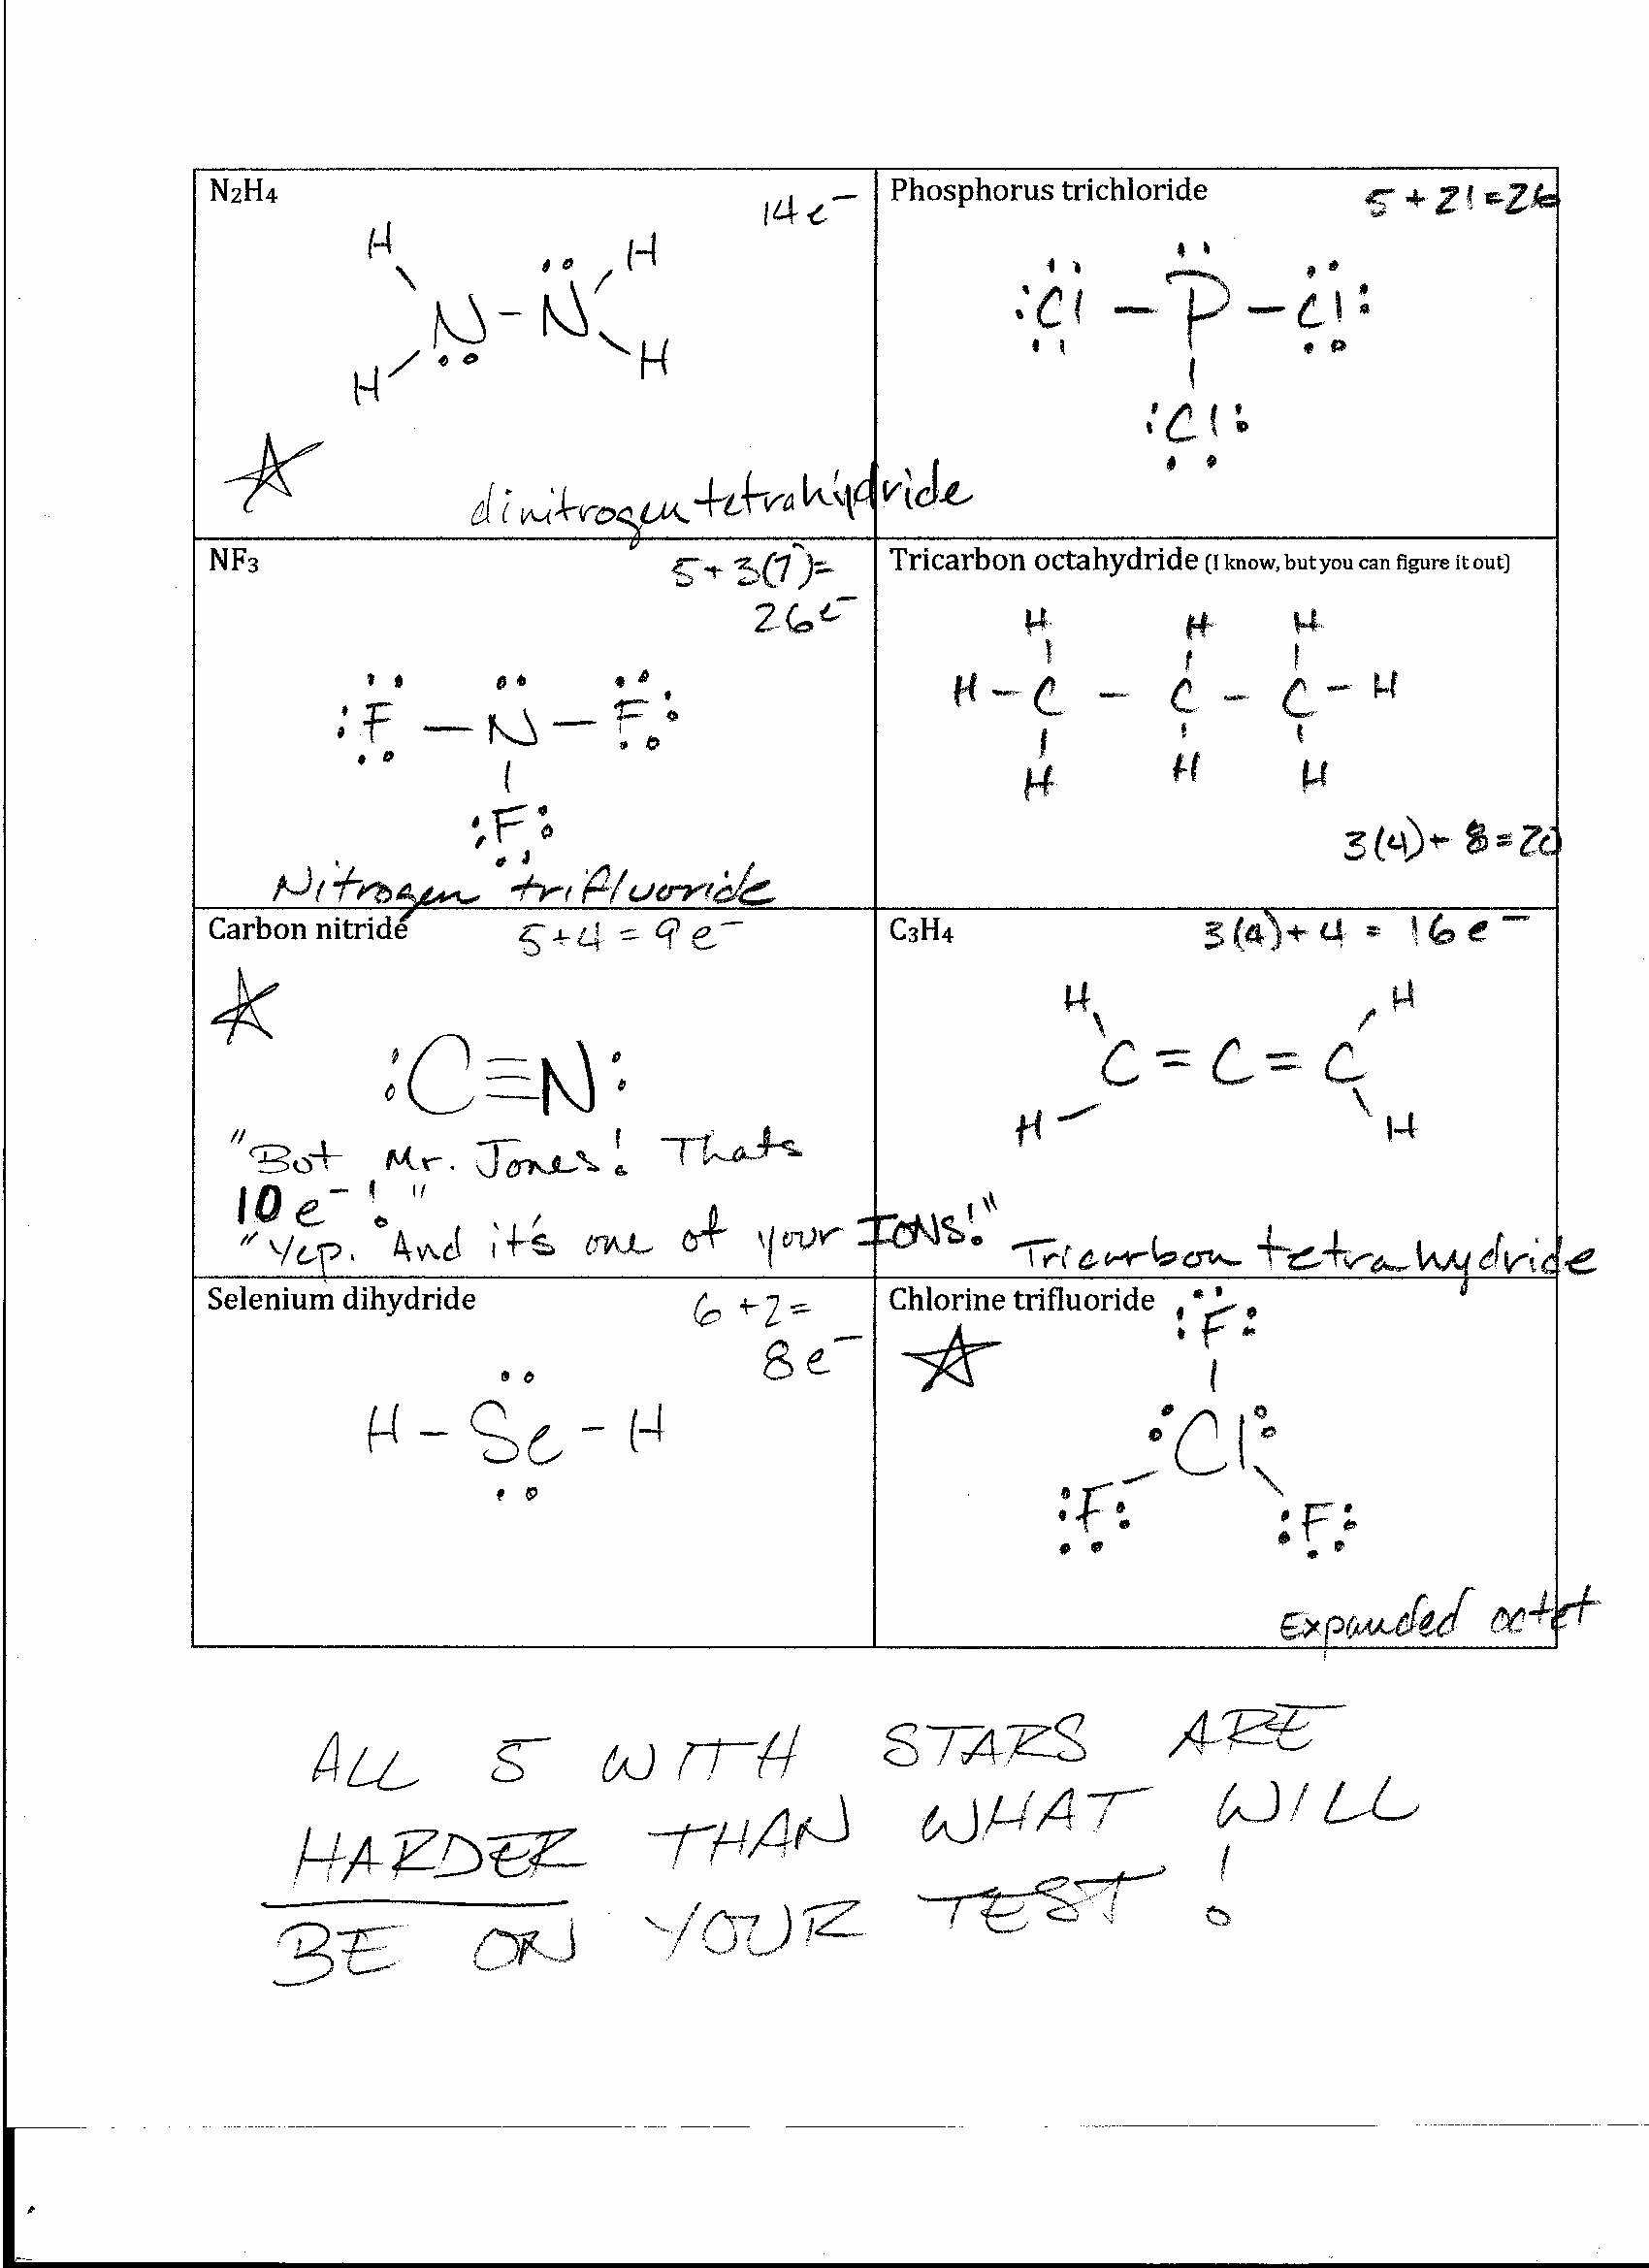 N2H4
14 e⁻
H H
N - N
H H
dinitrogen tetrahydride
Phosphorus trichloride
5 + 21 = 26
:Cl - P - Cl:
:Cl:
NF3
5 + 3(7) =
26 e⁻
:F - N - F:
:F:
Nitrogen trifluoride
Tricarbon octahydride (I know, but you can figure it out)
H H H
H - C - C - C - H
H H H
3(4) + 8 = 20
Carbon nitride
5 + 4 = 9 e⁻
:C≡N:
"But Mr. Jones! Thats
10 e⁻!"
"Yep. And it's one of your IONS!"
C3H4
3(4) + 4 = 16 e⁻
H H
C = C = C
H H
Tricarbon tetrahydride
Selenium dihydride
6 + 2 =
8 e⁻
H - Se - H
Chlorine trifluoride
:F:
:Cl:
:F: :F:
Expanded octet
ALL 5 WITH STARS ARE
HARDER THAN WHAT WILL
BE ON YOUR TEST!